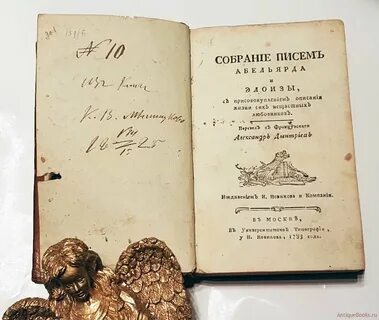 № 10
СОБРАНІЕ ПИСЕМЪ
АБЕЛЬЯРДА
И
ЭЛОИЗЫ,
съ присовокупленіемъ описанія
жизни сихъ нещастныхъ
любовниковъ.
Перевелъ съ Французскаго
Александръ Дмитріевъ
Иждивеніемъ Н. Новикова и Компаніи.
ВЪ МОСКВѢ,
Въ Университетской Типографіи,
у Н. Новикова, 1783 года.
AntiqueBooks.ru